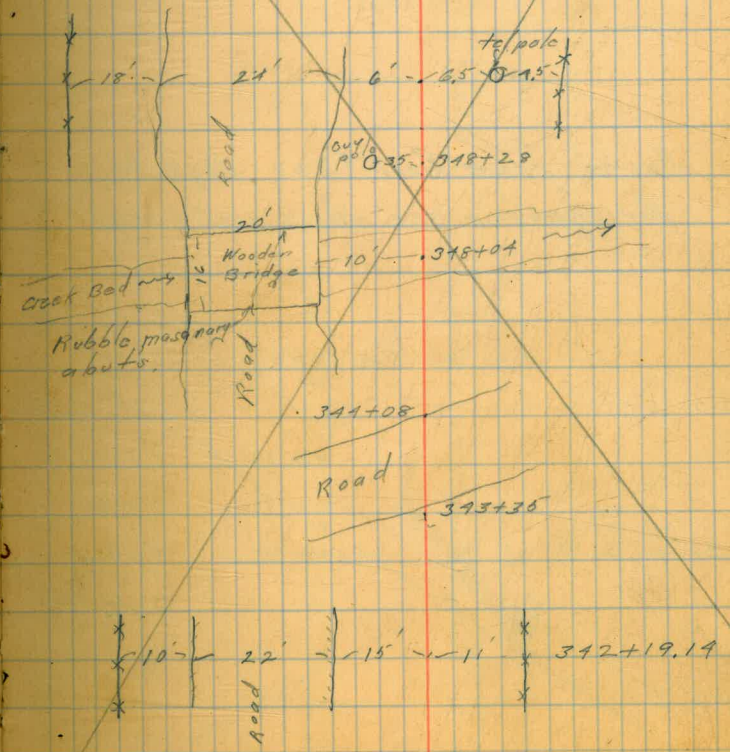 te, pole
18' 24' 6' 6.5 4.5
Road
Guy
pole 3.5 348+28
20'
Wooden
Bridge
16' 10' 348+04
Creek Bed
Rubble masonary
abuts.
Road
344+08
Road
343+35
10' 22' 15' 11' 342+19.14
Road